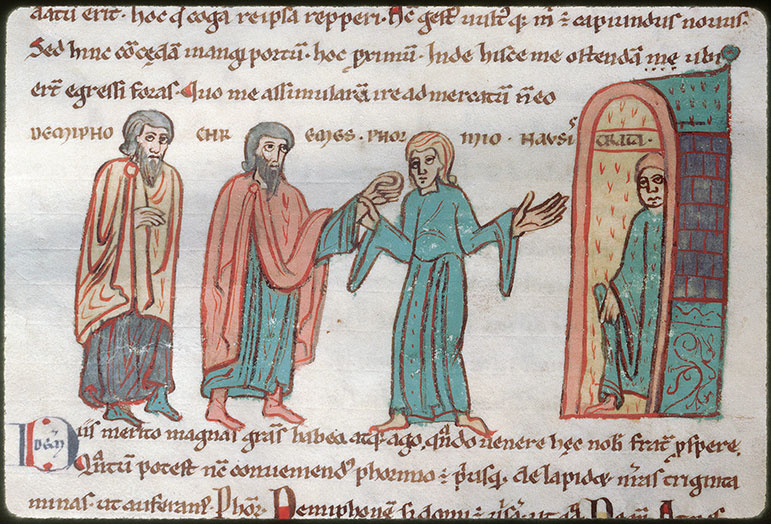 datū erit · hoc q̄ cogā reipsa repperi. Nc̄ gest' uult'q; m̄ ē capiundus nouus.
Sed hinc cōcędam in angiportū · hoc primū · Inde hisce me ostendam mę ubi
err̄ egressi foras · Quo me assimularā ire ad mercatū n̄ eo
DEMIPHO CHR EMES · PHOR MIO · NAVSI CRATA ·
DEM̄ Diis merito magnas grās habeo atq; ago, qn̄do uenere hęc nob̄ frat̄ p̄spere.
Qn̄tum potest nc̄ conueniend' phormio & p̄usq; delapidę n̄ras triginta
minas · ut auferam'. Phor̄. Demiphonem si domi ē